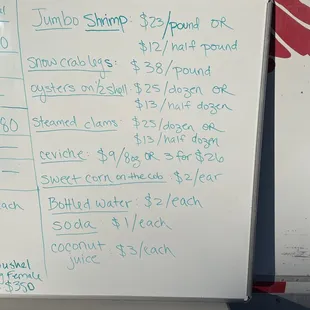 Jumbo Shrimp: $23/pound OR
$12/half pound
snow crab legs: $38/pound
oysters on 1/2 shell: $25/dozen OR
$13/half dozen
steamed clams: $25/dozen OR
$13/half dozen
ceviche: $9/8oz OR 3 for $26
sweet corn on the cob: $2/ear
Bottled water: $2/each
soda: $1/each
coconut juice: $3/each
80
each
bushel
Female
$350